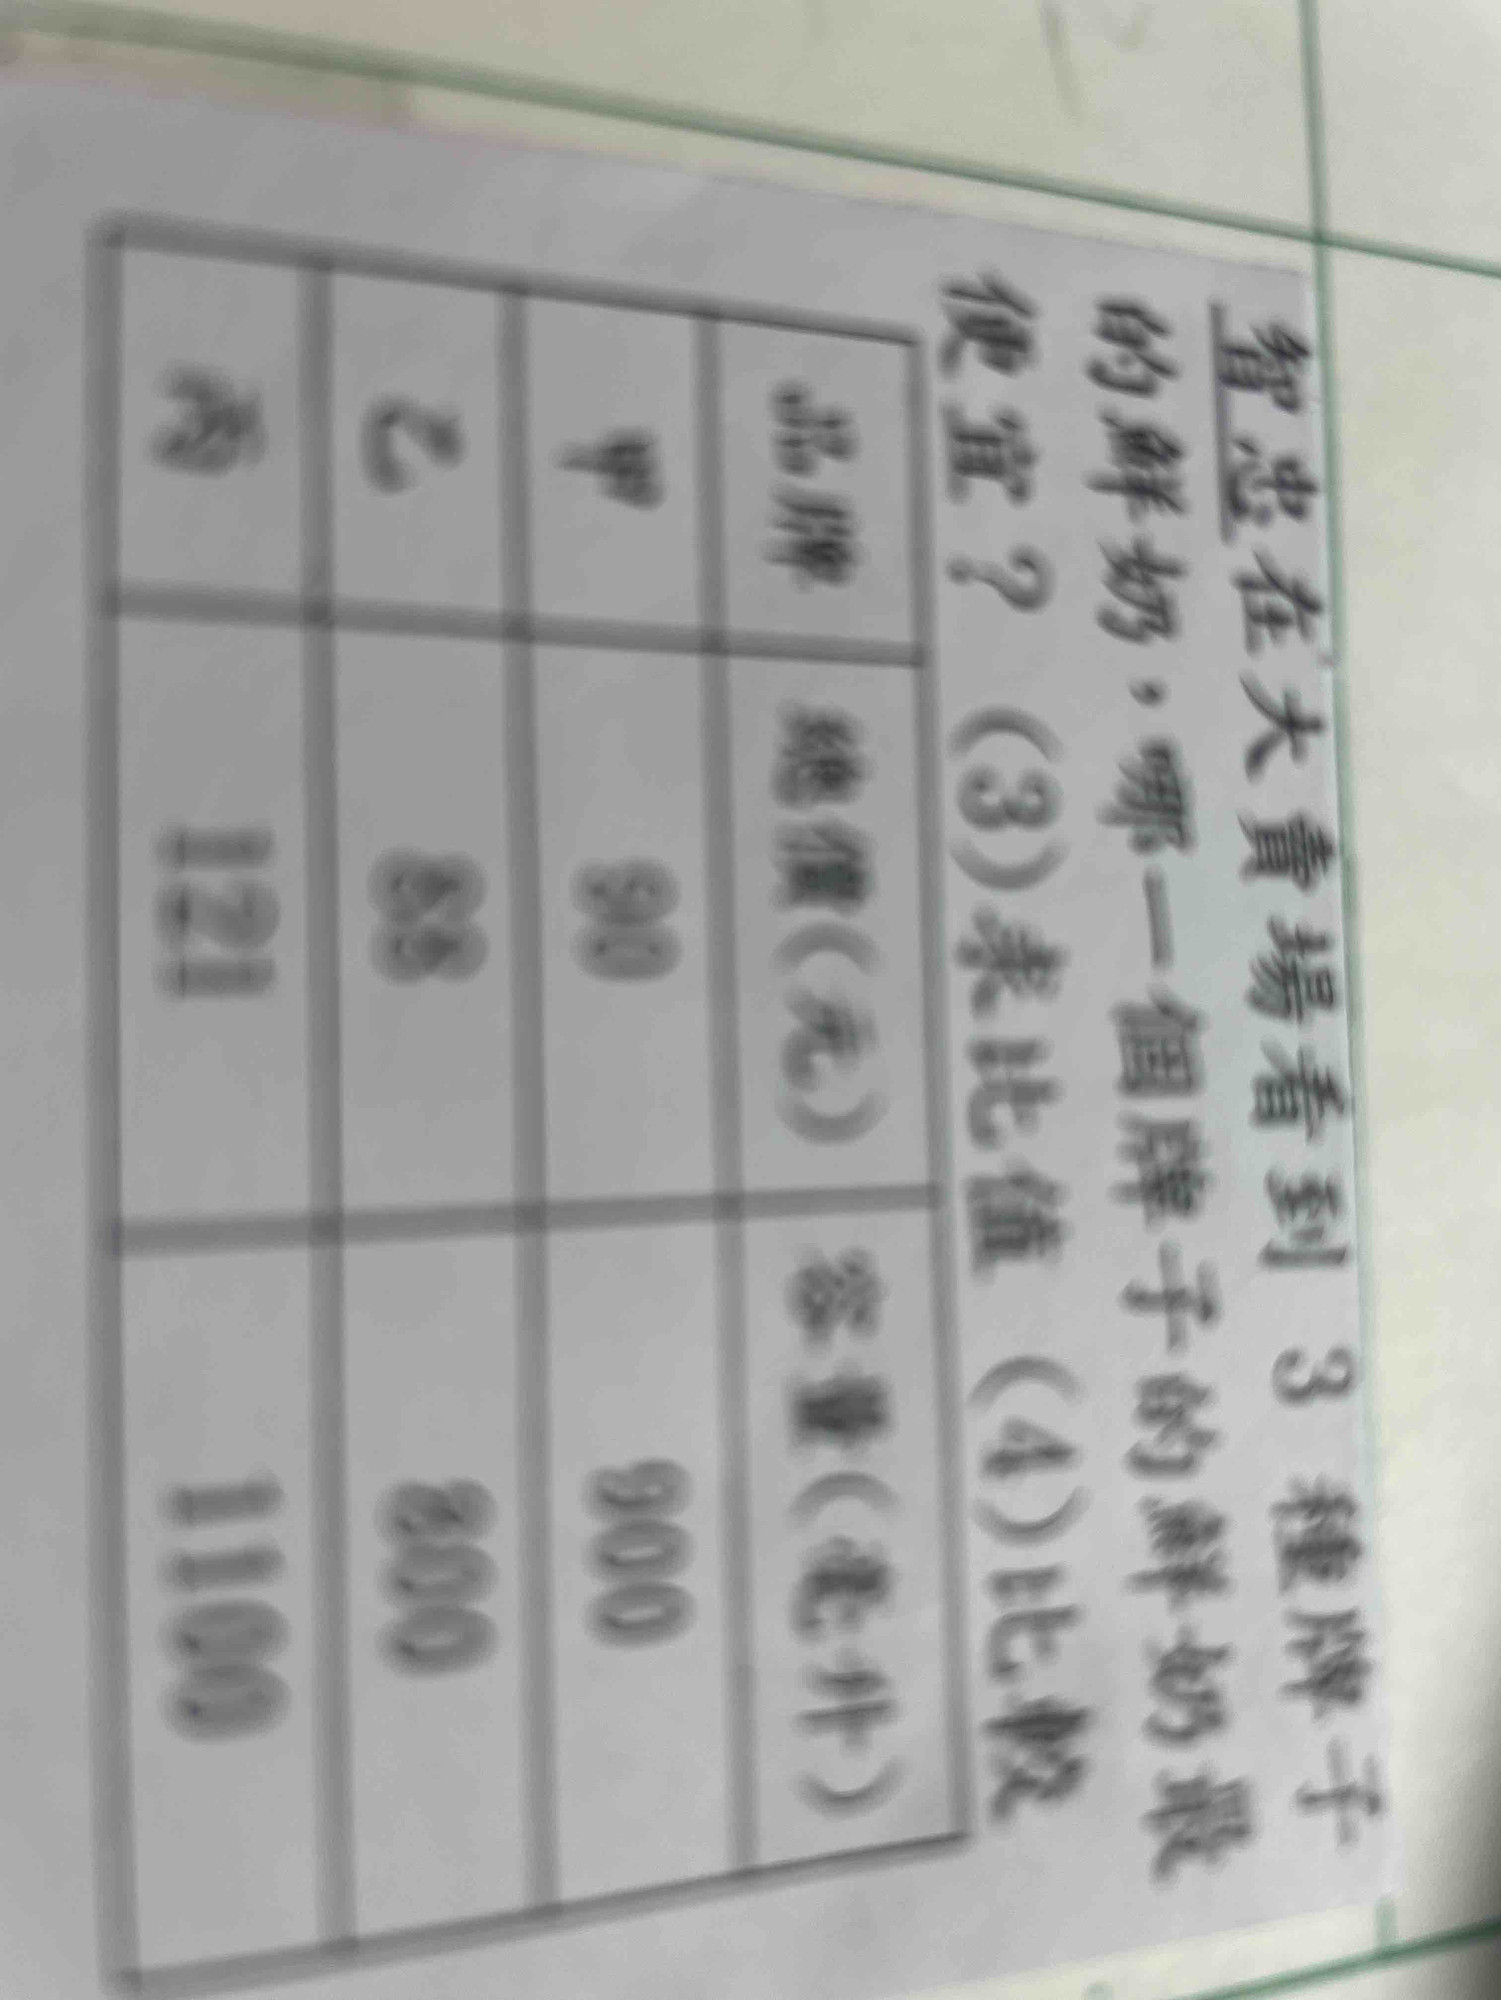 智忠在大賣場看到 3 種牌子
的鮮奶,哪一個牌子的鮮奶最
便宜? (3)求比值 (4)比較
品牌 總價(元) 容量(毫升)
甲 90 900
乙 88 800
丙 121 1100